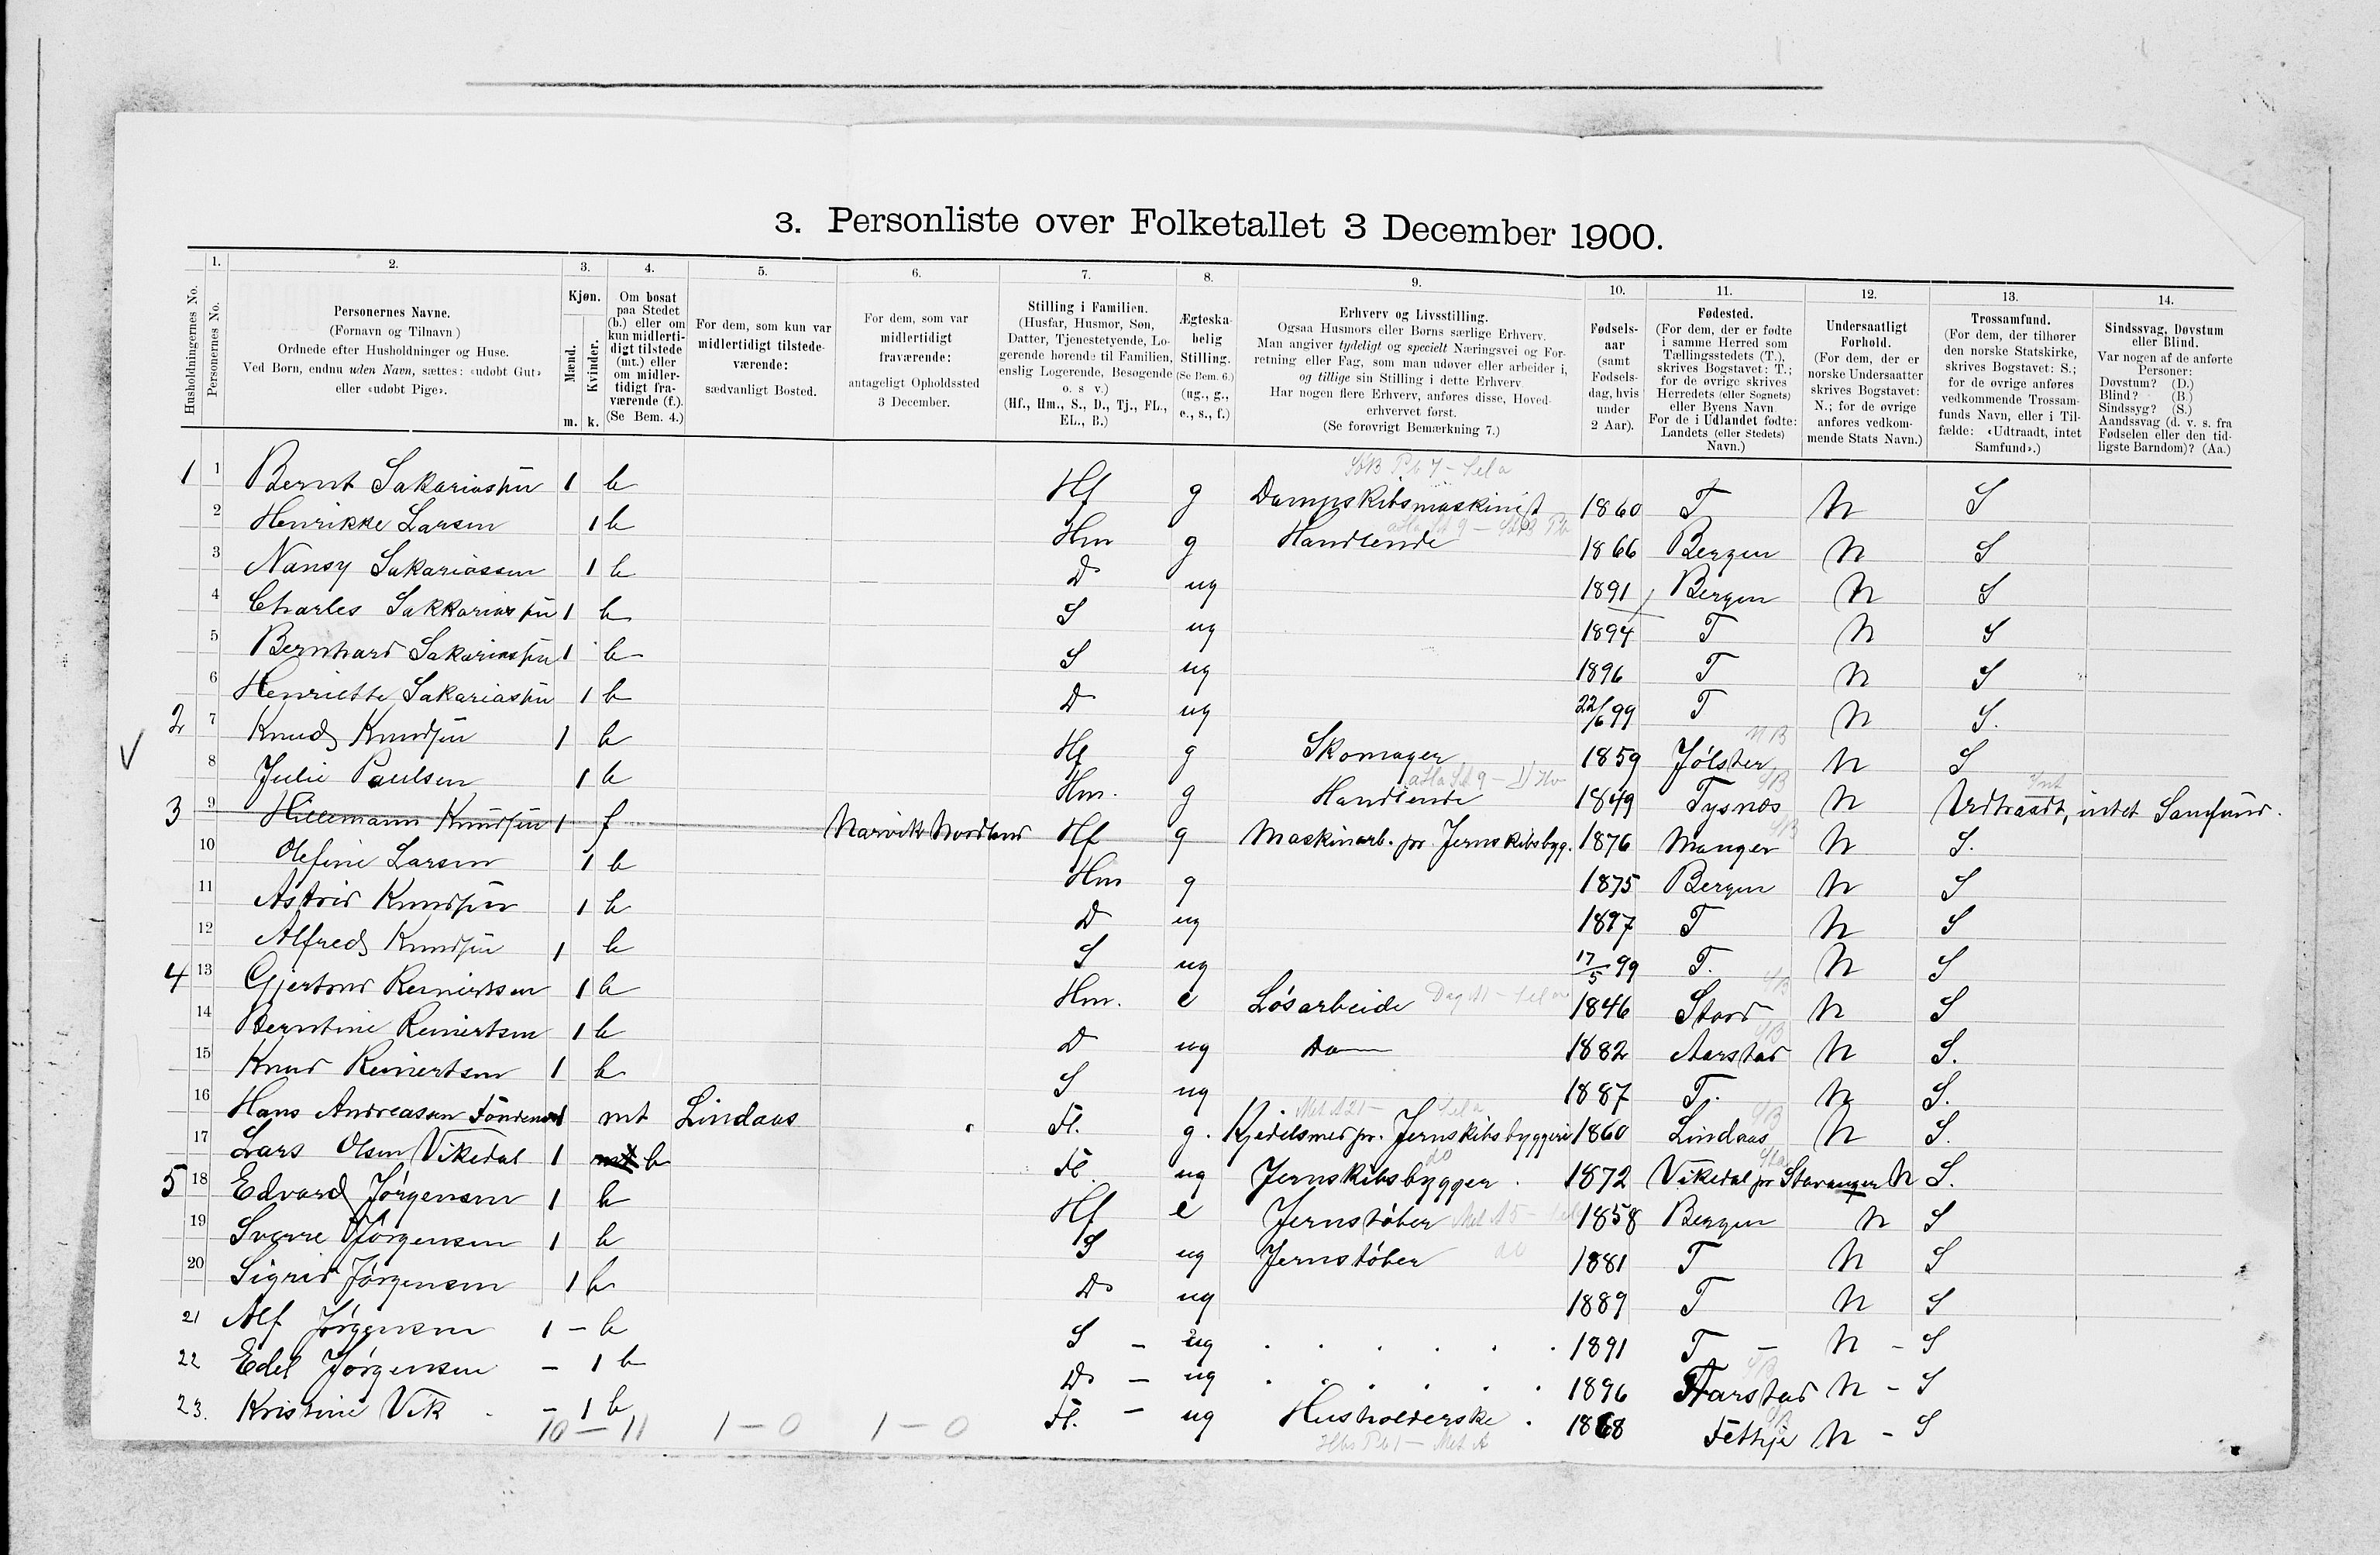 3. Personliste over Folketallet 3 December 1900.
1. 2. 3. 4. 5. 6. 7. 8. 9. 10. 11. 12. 13. 14.
Husholdningernes No.
Personernes No.
Personernes Navne.
(Fornavn og Tilnavn)
Ordnede efter Husholdninger og Huse.
Ved Børn, endnu uden Navn, sættes: «udøbt Gut»
eller «udøbt Pige».
Kjøn.
Mænd.
Kvinder.
m. k.
Om bosat
paa Stedet
(b.) eller om
kun midlerti-
digt tilstede
(mt.) eller
om midler-
tidigt fra-
værende (f.).
(Se Bem. 4.)
For dem, som kun var
midlertidigt tilstede-
værende:
sædvanligt Bosted.
For dem, som var
midlertidigt
fraværende:
antageligt Opholdssted
3 December.
Stilling i Familien.
(Husfar, Husmor, Søn,
Datter, Tjenestetyende, Lo-
gerende hørende til Familien,
enslig Logerende, Besøgende
o. s v.)
(Hf., Hm., S., D., Tj., FL.,
EL., B.)
Ægteska-
belig
Stilling.
(Se Bem. 6.)
(ug., g.,
e., s., f.)
Erhverv og Livsstilling.
Ogsaa Husmors eller Børns særlige Erhverv.
Man angiver tydeligt og specielt Næringsvei og For-
retning eller Fag, som man udøver eller arbeider i,
og tillige sin Stilling i dette Erhverv.
Har nogen flere Erhverv, anføres disse, Hoved-
erhvervet først.
(Se forøvrigt Bemærkning 7.)
Fødsels-
aar
(samt
Fødsels-
dag, hvis
under
2 Aar).
Fødested.
(For dem, der er fødte
i samme Herred som
Tællingsstedets (T.),
skrives Bogstavet: T.;
for de øvrige skrives
Herredets (eller Sognets)
eller Byens Navn
For de i Udlandet fødte:
Landets (eller Stedets)
Navn.)
Undersaatligt
Forhold.
(For dem, der er
norske Undersaatter
skrives Bogstavet:
N.; for de øvrige
anføres vedkom-
mende Stats Navn.)
Trossamfund.
(For dem, der tilhører
den norske Statskirke,
skrives Bogstavet: S.;
for de øvrige anføres
vedkommende Trossam-
funds Navn, eller i Til-
fælde: «Udtraadt, intet
Samfund».)
Sindssvag, Døvstum
eller Blind.
Var nogen af de anførte
Personer:
Døvstum? (D.)
Blind? (B.)
Sindssyg? (S.)
Aandssvag (d. v. s. fra
Fødselen eller den tid-
ligste Barndom)? (Aa.)
1 1 Bernt Sakariassen 1 b Hf g Dampskibsmaskinist 1860 T N S
2 Henrikke Larsen 1 b Hm g Handlende 1866 Bergen N S
3 Nansy Sakariassen 1 b D ug 1891 Bergen N S
4 Charles Sakkariassen 1 b S ug 1894 T N S
5 Bernhard Sakariassen 1 b S ug 1896 T N S
6 Henriette Sakariassen 1 b D ug 22/6 99 T N S.
2 7 Knud Knudsen 1 b Hf g Skomager 1859 Jølster N S
8 Julie Paulsen 1 b Hm. g Handlende 1849 Tysnæs N Udtraadt, intet Samfund.
3 9 Hillemann Knudsen 1 f Narvik Nordland Hf g Maskinarb. pr. Jernskibsbyg. 1876 Manger N S.
10 Olefine Larsen 1 b Hm g 1875 Bergen N S
11 Astrid Knudsen 1 b D ug 1897 T N S
12 Alfred Knudsen 1 b S ug 17/5 99 T. N S
4 13 Gjertrud Reinertsen 1 b Hm. e Løsarbeide 1846 Stord N S
14 Berntine Reinertsen 1 b D ug Do 1882 Aarstad N S.
15 Knud Reinertsen 1 b S ug 1887 T. N S.
16 Hans Andreassen 1 mt Lindaas Fl. g. Kjedelsmed pr. Jernskibsbyggeri 1860 Lindaas N S.
17 Lars Olsen Vikedal 1 b Fl. ug Jernskibsbygger. 1872 Vikedal pr Stavanger N S.
5 18 Edvard Jørgensen 1 b Hf e Jernstøber 1858 Bergen N S
19 Sverre Jørgensen 1 b S ug Jernstøber 1881 T N S
20 Sigrid Jørgensen 1 b D ug 1889 T N S
21 Alf Jørgensen 1 - b S - ug 1891 T - N - S
22 Edel Jørgensen - 1 b D - ug 1896 Aarstad N - S
23. Kristine Vik - 1 b Fl. - ug Husholderske. 1868 Fethje N - S
10 - 11 1 - 0 1 - 0